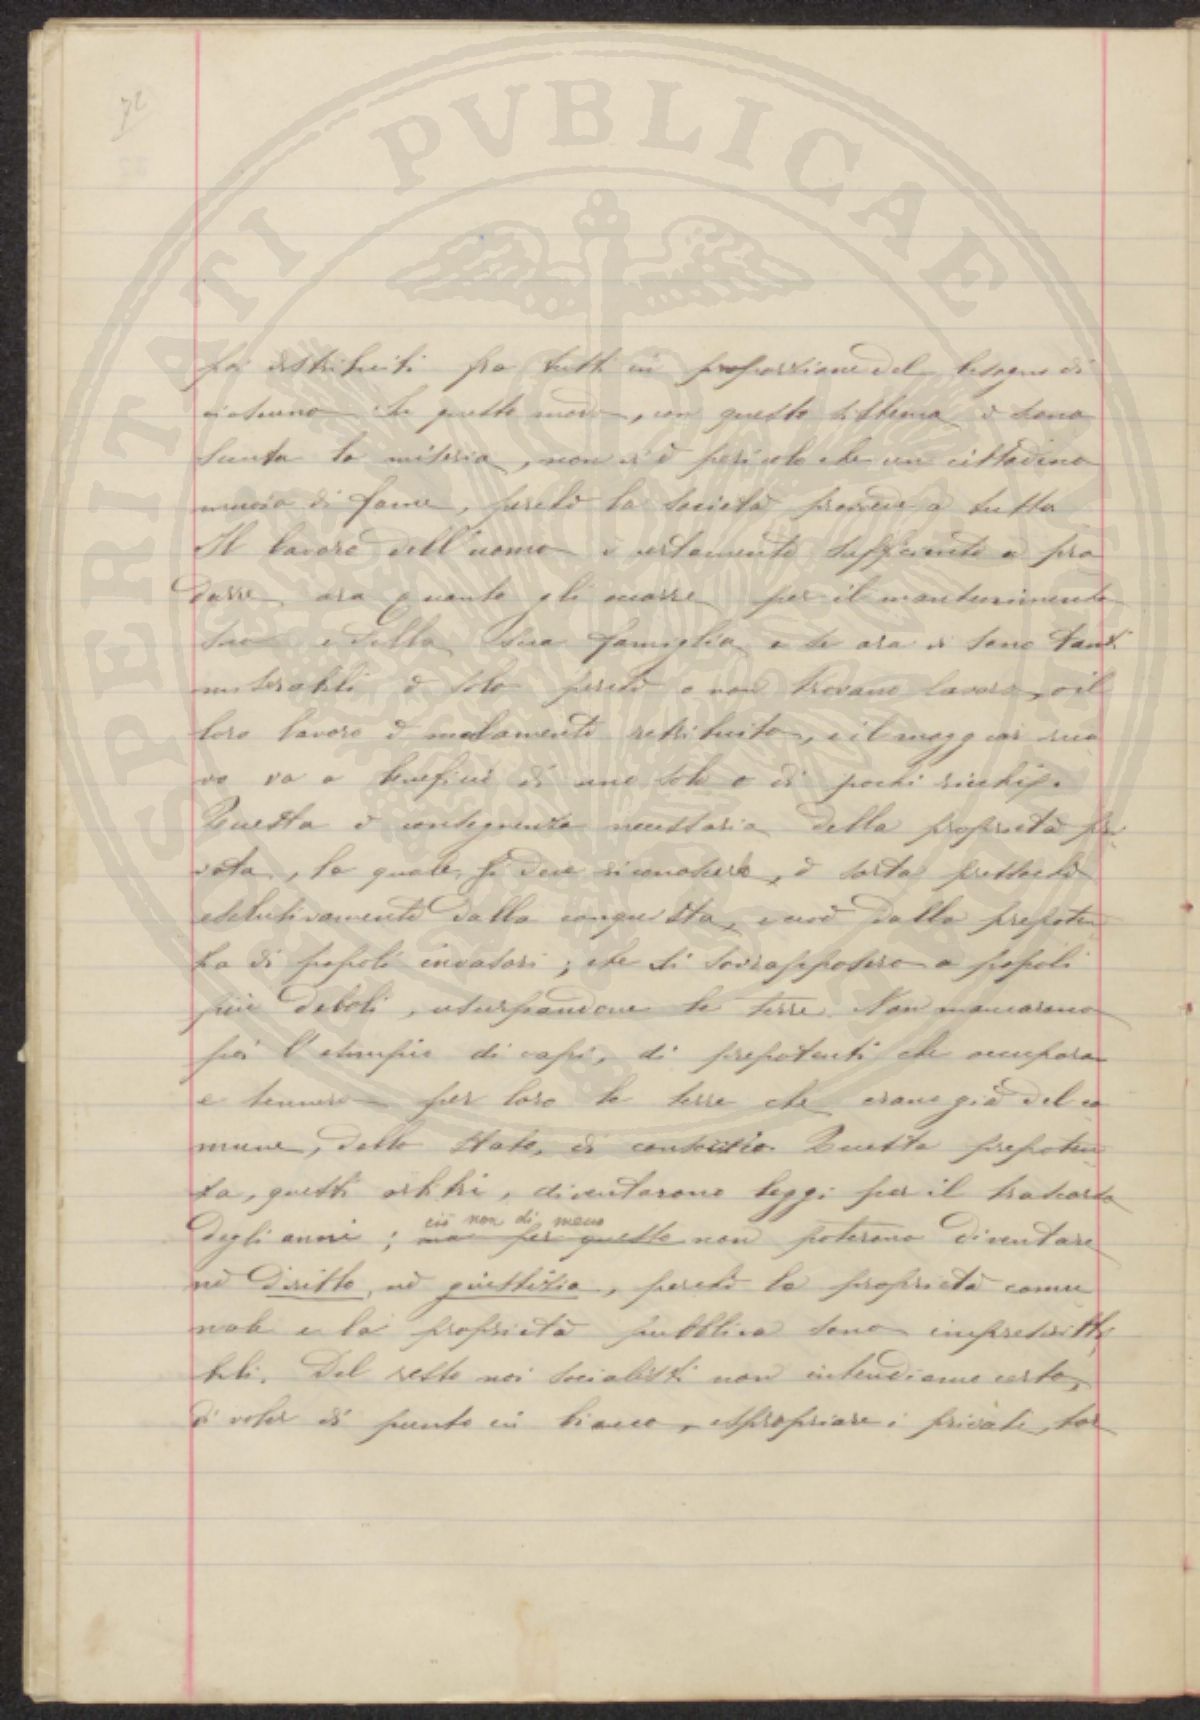 72
poi distribuiti fra tutti in proporzione del bisogno di
ciascuno. In questo modo, con questo sistema è sono
scusata la miseria, non vi è pericolo che un cittadino
muoia di fame, perchè la società provvede a tutto.
Il lavoro dell'uomo è certamente sufficiente a pro
durre ora quanto gli occorre per il mantenimento
suo e della sua famiglia e se ora vi sono tanti
miserabili è solo perchè o non trovano lavoro, o il
loro lavoro è malamente retribuito, e il maggior rica
vo va a beneficio di uno solo o di pochi ricchi.
Questa è conseguenza necessaria della proprietà pri
vata, la quale, si deve riconoscere, è sorta pressochè
esclusivamente dalla conquista, cioè dalla prepoten
za di popoli invasori; che si sovrapposero a popoli
più deboli, usurpandone le terre. Non mancarono
poi l'esempio di capi, di prepotenti che occuparo
e tennero per loro le terre che erano già del co
mune, dello Stato, di consorzio. Questa prepoten
za, questi arbitri, diventarono leggi per il trascorso
ciò non di meno
degli anni; ma per questo non poterono diventare
nè diritto, nè giustizia, perchè la proprietà comu
nale e la proprietà pubblica sono imprescritti
bili. Del resto noi socialisti non intendiamo certo,
di voler di punto in bianco, espropriare i privati, tor
SPERITATI PVBLICAE